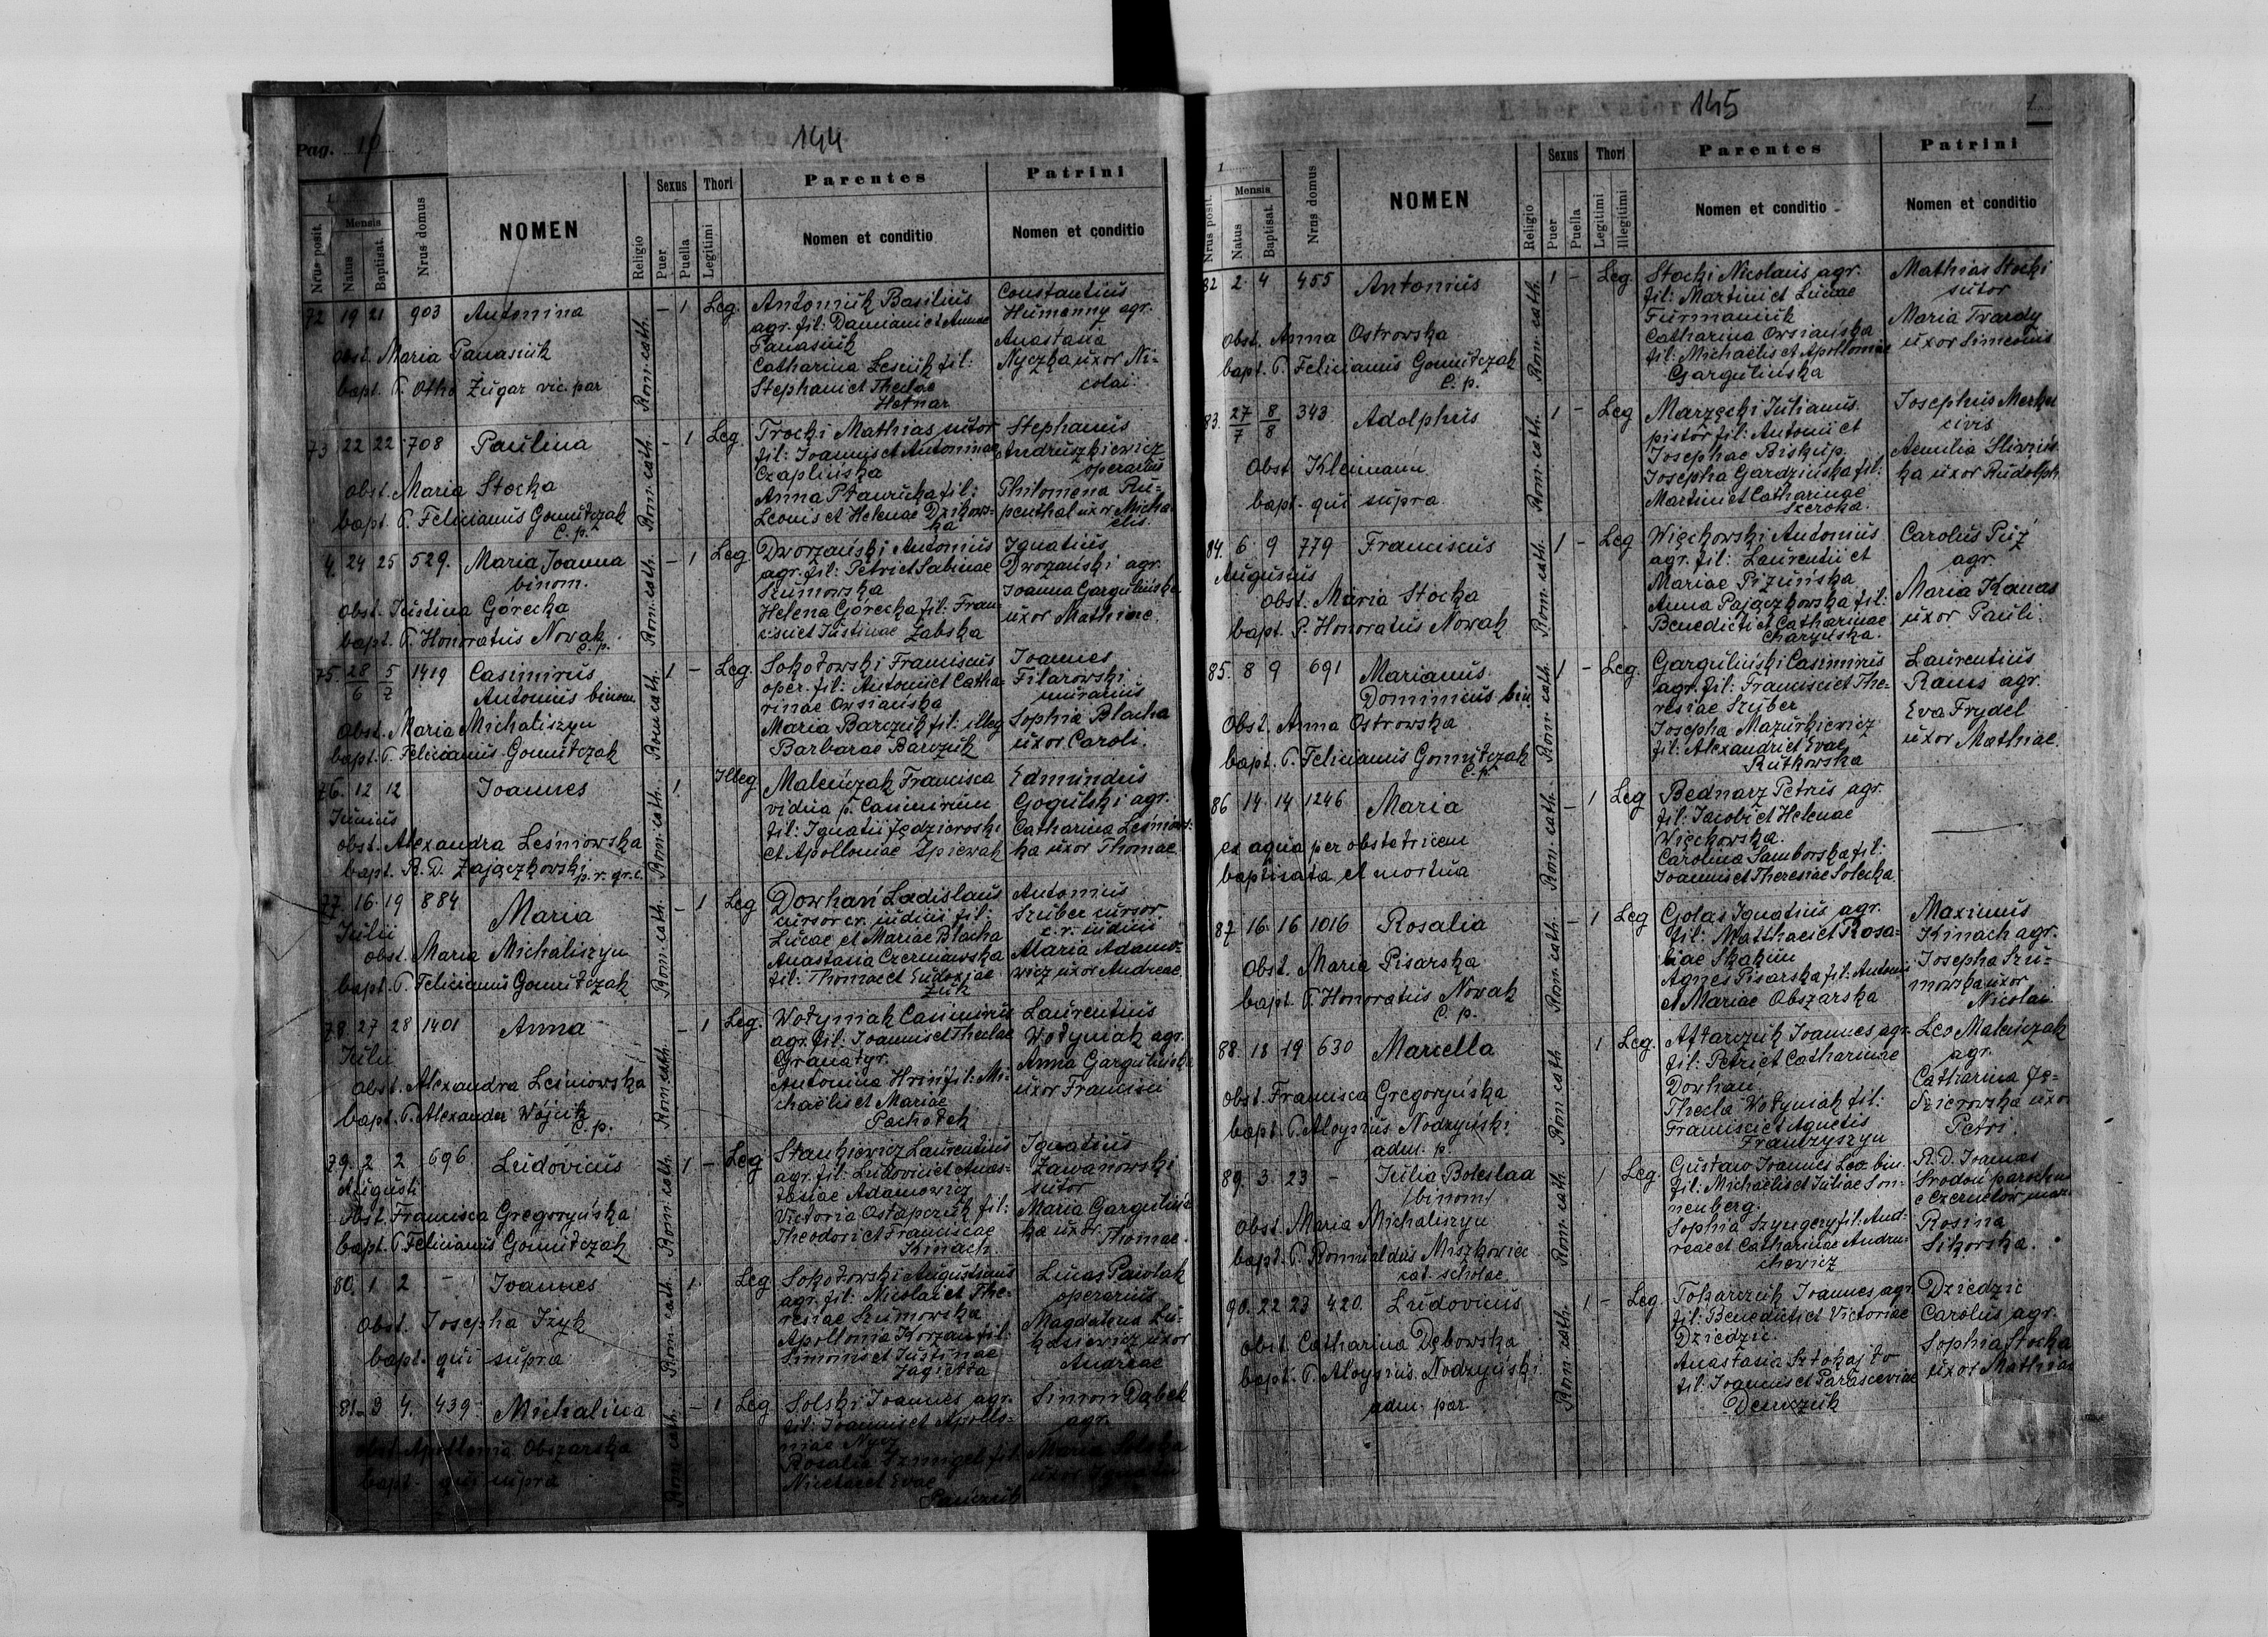 Pag.
144
I.
Nrus posit.
Mensis
Natus
Baptisat.
Nrus domus
NOMEN
Religio
Sexus
Puer
Puella
Thori
Legitimi
Parentes
Nomen et conditio
Patrini
Nomen et conditio
72 19 21 903 Antonina
obst. Maria Panasiuk
bapt. P. Otho Żugar vic. par
Rom. cath.
- 1 Leg.
Antoniuk Basilius
agr. fil: Damiani et Annae
Panasiuk
Catharina Lesiuk fil:
Stephani et Theclae
Hetnar
Constantius
Humenny agr.
Anastasia
Nyczka uxor Ni-
colai
73 22 22 708 Paulina
obst. Maria Stocka
bapt. P. Felicianus Gomułczak
c. p.
Rom. cath.
- 1 Leg.
Trocki Mathias sutor
fil: Joannis et Antoninae
Czaplińska
Anna Ptauricha fil:
Leonis et Helenae Dzikows-
ka
Stephanus
Andruszkiewicz
operarius
Philomena Ru-
penthal uxor Micha
elis.
4. 24 25 529. Maria Joanna
binom.
obst. Justina Górecka
bapt. P. Honoratus Nowak
c. p.
Rom. cath.
- 1 Leg
Dworzański Antonius
agr. fil: Petri et Sabinae
Szumowska
Helena Górecka fil: Fran-
cisci et Justinae Zabska
Ignatius
Dworzański agr.
Joanna Gargulińska
uxor Mathiae.
75. 28/6 5/7 1419 Casimirus
Antonius binom.
Obst. Maria Michaliszyn
bapt. P. Felicianus Gomułczak
Rom. cath.
1 - Leg.
Sokołowski Franciscus
oper. fil: Antonii et Catha-
rinae Owsiańska
Maria Barczuk fil: illeg
Barbarae Barczuk
Joannes
Filarowski
murarius
Sophia Blacha
uxor Caroli.
76. 12 12 Joannes
Junius
obst. Alexandra Leśniowska
bapt. R. D. Zajączkowski p. r. gr. c.
Rom. cath.
1 Illeg
Maleńczak Francisca
vidua p. Casimirum
fil: Ignatii Jędzierowski
et Apolloniae Spiewak
Edmundus
Gogulski agr.
Catharina Leśniows-
ka uxor Thomae
77. 16 19 884 Maria
Julii
obst. Maria Michaliszyn
bapt. P. Felicianus Gomułczak
Rom. cath.
- 1 Leg
Dowhań Ladislaus
cursor cr. iudicii fil:
Lucae et Mariae Blacha
Anastasia Czerniawska
fil: Thomae et Eudoxiae
Żuk
Antonius
Szuber cursor
c. r. iudicii
Maria Adamo-
wicz uxor Andreae
78. 27 28 1401 Anna
Julii
obst. Alexandra Leśniowska
bapt. P. Alexander Wójcik
c. p.
Rom. cath.
- 1 Leg.
Wołyniak Casimirus
agr. fil: Joannis et Theclae
Granatyr.
Antonina Hrin fil: Mi-
chaelis et Mariae
Pachołek
Laurentius
Wołyniak agr.
Anna Gargulińska
uxor Francisci
79. 2 2 696 Ludovicus
Augusti
obst. Francisca Gregoryńska
bapt. P Felicianus Gomułczak
Rom. cath.
1 - Leg
Stankiewicz Laurentius
agr. fil: Ludovici et Anas-
tasiae Adamowicz
Victoria Ostapczuk fil:
Theodori et Franciscae
Kinach
Ignatius
Zawanowski
sutor
Maria Gargulińs
ka uxor Thomae
80. 1 2 - Joannes
Obst. Josepha Iżyk
bapt. qui supra
Rom. cath.
1 Leg
Sokołowski Augustinus
agr. fil: Nicolai et The-
resiae Szumowska
Apollonia Korzan fil:
Simonis et Justinae
Jagiełła
Lucas Paiolak
operarius
Magdalena Łu-
kasiewicz uxor
Andreae
81. 3 4. 439. Michalina
obst. Apollonia Obszarska
bapt. qui supra
Rom. cath.
- 1 Leg
Solski Joannes agr.
fil: Joannis et Apollo-
niae Nycz
Rosalia Szmigel fil:
Nicolai et Evae
Simon Dąbek
agr.
Maria Solska
uxor Ignatii
145
I
Nrus posit.
Mensis
Natus
Baptisat.
Nrus domus
NOMEN
Religio
Sexus
Puer
Puella
Thori
Legitimi
Illegitimi
Parentes
Nomen et conditio
Patrini
Nomen et conditio
82 2. 4 455 Antonius
Obst. Anna Ostrowska
bapt. P. Felicianus Gomułczak
c. p.
Rom. cath.
1 - Leg.
Stocki Nicolaus agr.
fil: Martini et Luciae
Furmaniuk
Catharina Owsiańska
fil: Michaelis et Apolloniae
Gargulińska
Mathias Stocki
sutor
Maria Twardy
uxor Simeonis
83. 27/7 8/8 343 Adolphus
Obst. Kleimann
bapt. qui supra
Rom. cath.
1 - Leg
Marzęcki Julianus
pistor fil: Antoni et
Josephae Biskup.
Josepha Gardzińska fil:
Martini et Catharinae
Szeroka.
Josephus Merku
civis
Aemilia Sliwińs
ka uxor Rudolph
84. 6 9 779 Franciscus
Augustus
Obst. Maria Stocka
bapt. P. Honoratus Nowak
Rom. cath.
1 - Leg
Więckowski Antonius
agr. fil: Laurentii et
Mariae Piżuńska
Anna Pajączkowska fil:
Benedicti et Catharinae
Charyńska.
Carolus Puż
agr.
Maria Kanas
uxor Pauli.
85. 8 9 691 Marianus
Dominicus bin.
Obst. Anna Ostrowska
bapt. P. Felicianus Gomułczak
c. p.
Rom. cath.
1 - Leg.
Garguliński Casimirus
agr. fil: Francisci et The-
resiae Szuber
Josepha Mazurkiewicz
fil: Alexandri et Evae
Rutkowska
Laurentius
Rams agr.
Eva Frydel
uxor Mathiae.
86 14 14 1246 Maria
ex aqua per obstetricem
baptisata et mortua
Rom. cath.
- 1 Leg
Bednarz Petrus agr.
fil: Jacobi et Helenae
Więckowska.
Carolina Samborska fil:
Joannis et Theresiae Solecka
87 16 16 1016 Rosalia
Obst. Maria Pisarska
bapt. P. Honoratus Nowak
c. p.
Rom. cath.
- 1 Leg
Golas Ignatius agr.
fil: Matthaei et Rosa-
liae Skakun
Agnes Pisarska fil: Antoni
et Mariae Obszarska
Maximus
Kinach agr.
Josepha Szu-
mowska uxor
Nicolai
88. 18 19 630 Marcella
obst. Francisca Gregoryńska
bapt. P. Aloysius Nodzyński
adm. p.
Rom. cath
1 Leg.
Aftarczuk Joannes agr.
fil: Petri et Catharinae
Dowhan
Thecla Wołyniak fil:
Francisci et Agnetis
Franczyszyn
Leo Maleńczak
agr.
Catharina Ję-
dzierowska uxor
Petri.
89. 3. 23 - Julia Boleslaa
(binom)
Obst. Maria Michaliszyn
bapt. P. Romualdus Miszkowicz
cat. scholae
Rom. cath.
1 Leg.
Gustaw Joannes Leo bin.
fil: Michaelis et Juliae Son-
nenberg.
Sophia Szyngery fil: And-
reae et Catharinae Andru-
chewicz
R. D. Joannes
Srodoń parochus
e Czernelow maz
Rosina
Sikorska.
90. 22 23 420. Ludovicus
obst. Catharina Dębowska
bapt. P. Aloysius Nodzyński
adm. par
Rom. cath.
1 - Leg.
Tokarczuk Joannes agr.
fil: Benedicti et Victoriae
Dziedzic
Anastasia Sztokajło
fil: Joannis et Parasceviae
Demczuk
Dziedzic
Carolus agr.
Sophia Stocka
uxor Mathiae